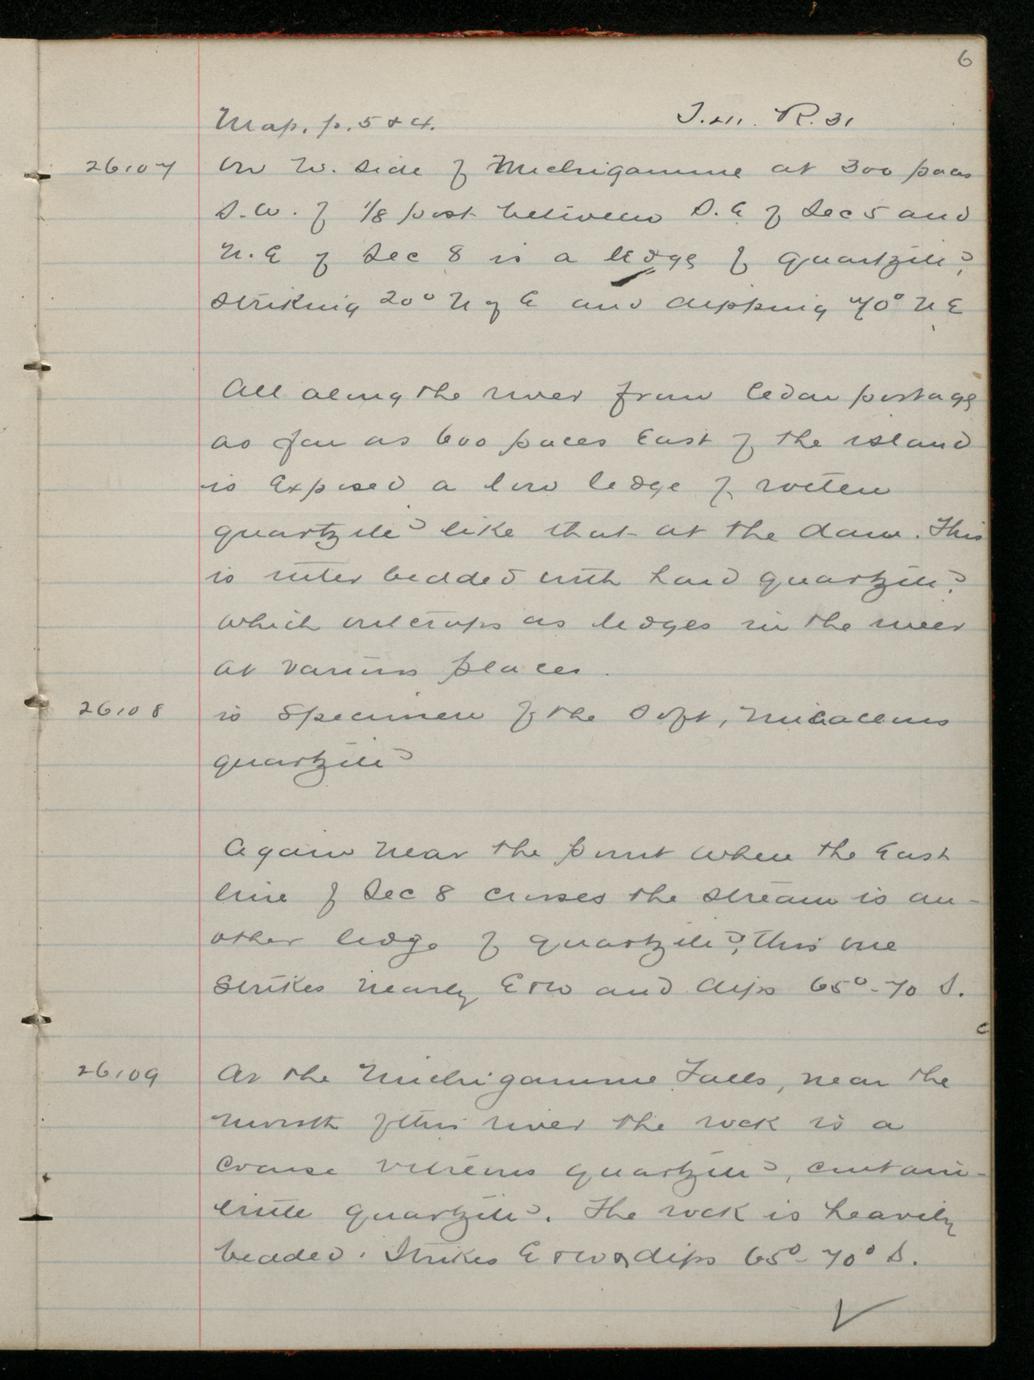 6
Map. p. 5 & 4. T.41. R. 31
26107 On W. side of Michigamme at 300 paces
S.W. of 1/8 post between S.E of Sec 5 and
N.E of Sec 8 is a ledge of quartzite,
striking 20° N of E and dipping 70° N E
All along the river from Cedar portage
as far as 600 paces East of the island
is Exposed a low ledge of rotten
quartzite like that at the dam. This
is inter bedded with hard quartzite,
which outcrops as ledges in the river
at various places.
26108 is Specimen of the soft, micaceous
quartzite
Again near the point where the East
line of Sec 8 crosses the stream is an-
other ledge of quartzite, this one
strikes nearly E & W and dips 65°-70 S.
26109 At the Michigamme Falls, near the
mouth of this river the rock is a
coarse vitreous quartzite,
quartzite. The rock is heavily
bedded. Strikes E & W & dips 65°-70° S.